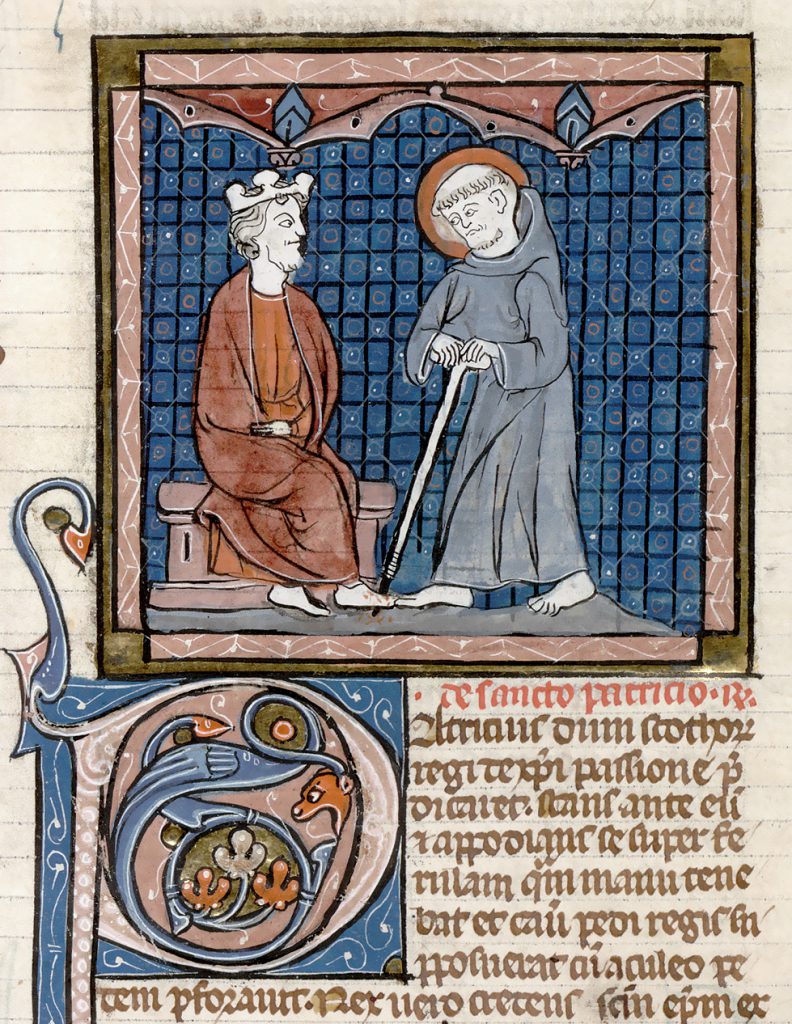 de sancto patricio. R.
Atricius dum scothoꝝ
regi de xp̄i passione p̄
dicaret. stans ante eū
⁊ appodians se super fe
rulam qm̄ manu tene
bat et casu pedi regis su
pposuerat cū aculeo pe
dem pforauit. Rex uero credens scm̄ ep̄m ex